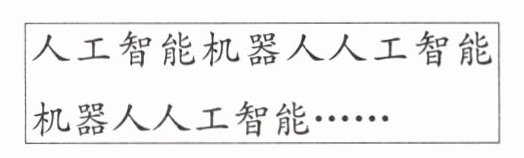 人工智能机器人人工智能
机器人人工智能……